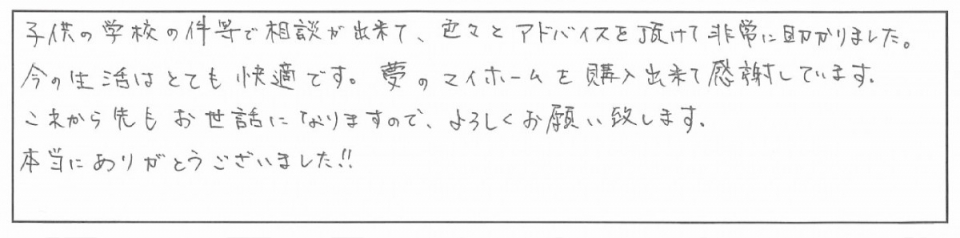 子供の学校の件等で相談が出来て、色々とアドバイスを頂けて非常に助かりました。
今の生活はとても快適です。夢のマイホームを購入出来て感謝しています。
これから先もお世話になりますので、よろしくお願い致します。
本当にありがとうございました!!